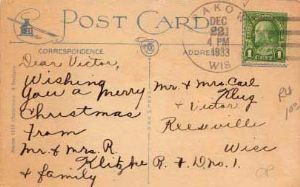 POST CARD
CORRESPONDENCE
ADDRESS
DEC
221
4 PM
1933
WIS
1 CENT 1
Dear Victor,
Wishing
You a Merry
Christmas
from
Mr. & Mrs. R.
Klitzke
& family
Mr. & Mrs Carl
Klug
& Victor
Reeseville
Wisc
R. F. D. no. 1.